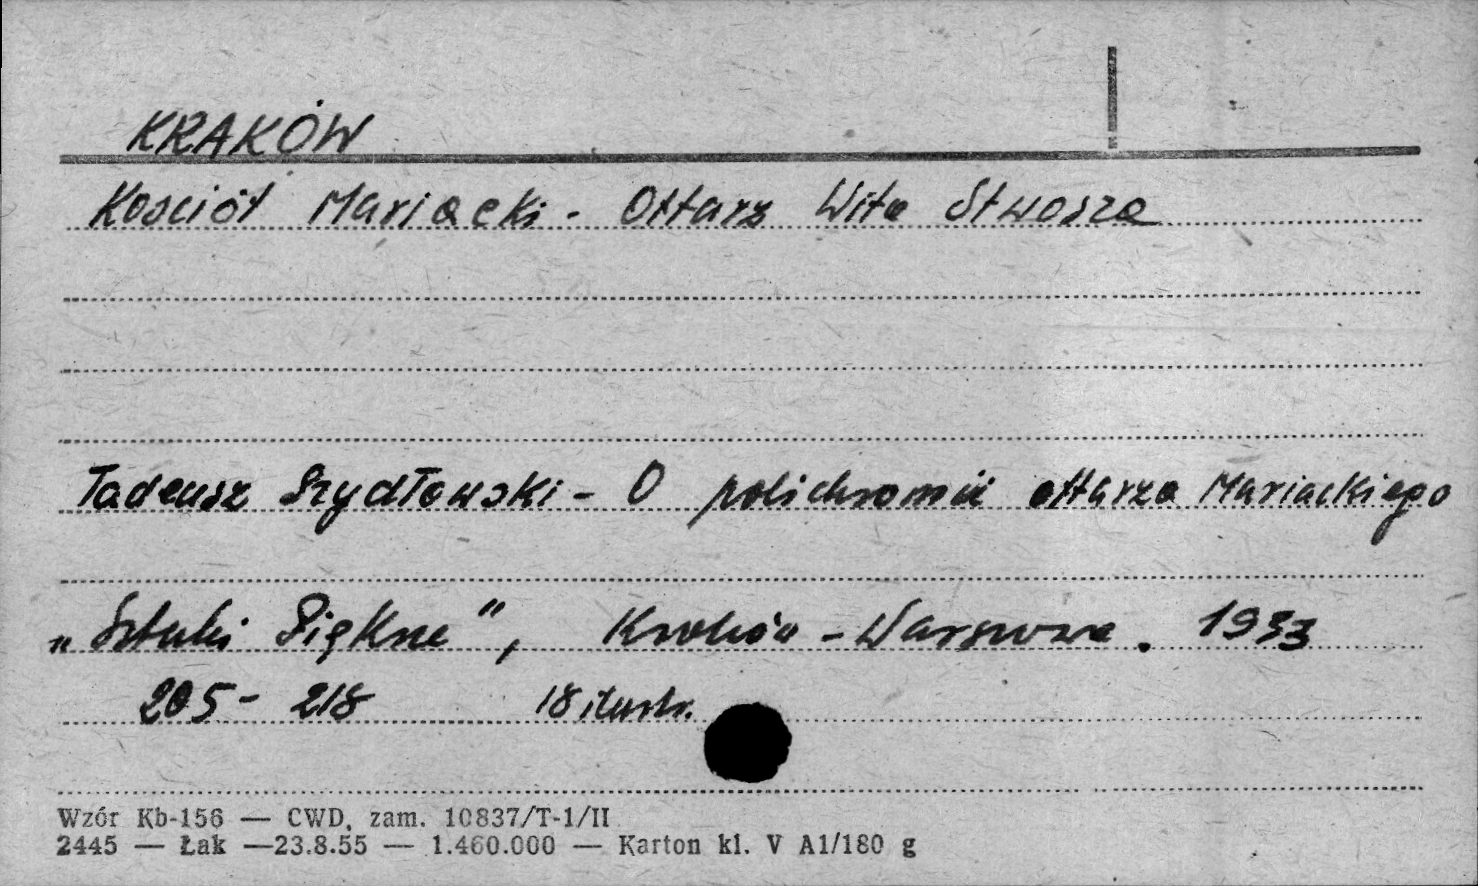 KRAKÓW
Kościół Mariacki - Ołtarz Wita Stwosza
Tadeusz Szydłowski - O polichromii ołtarza Mariackiego
„Sztuki Piękne", Kraków - Warszawa. 1933
205 - 218 18 ilustr.
Wzór Kb-156 — CWD, zam. 10837/T-1/II
2445 — Łak —23.8.55 — 1.460.000 — Karton kl. V A1/180 g